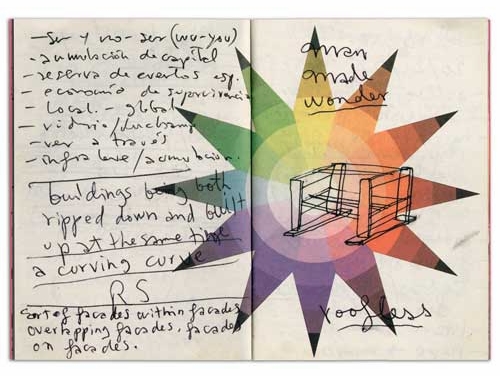 - Ser y no-ser (wu-you)
- acumulación de capital
- reserva de eventos esp.
- economía de supervivencia
- local - global
- vidrio/duchamp
- ver a través
- infra leve/acumulación.
buildings being both
ripped down and built
up at the same time
a curving curve
RS
sort of facades within facades
overlapping facades, facades
on facades.
man
made
wonder
roofless